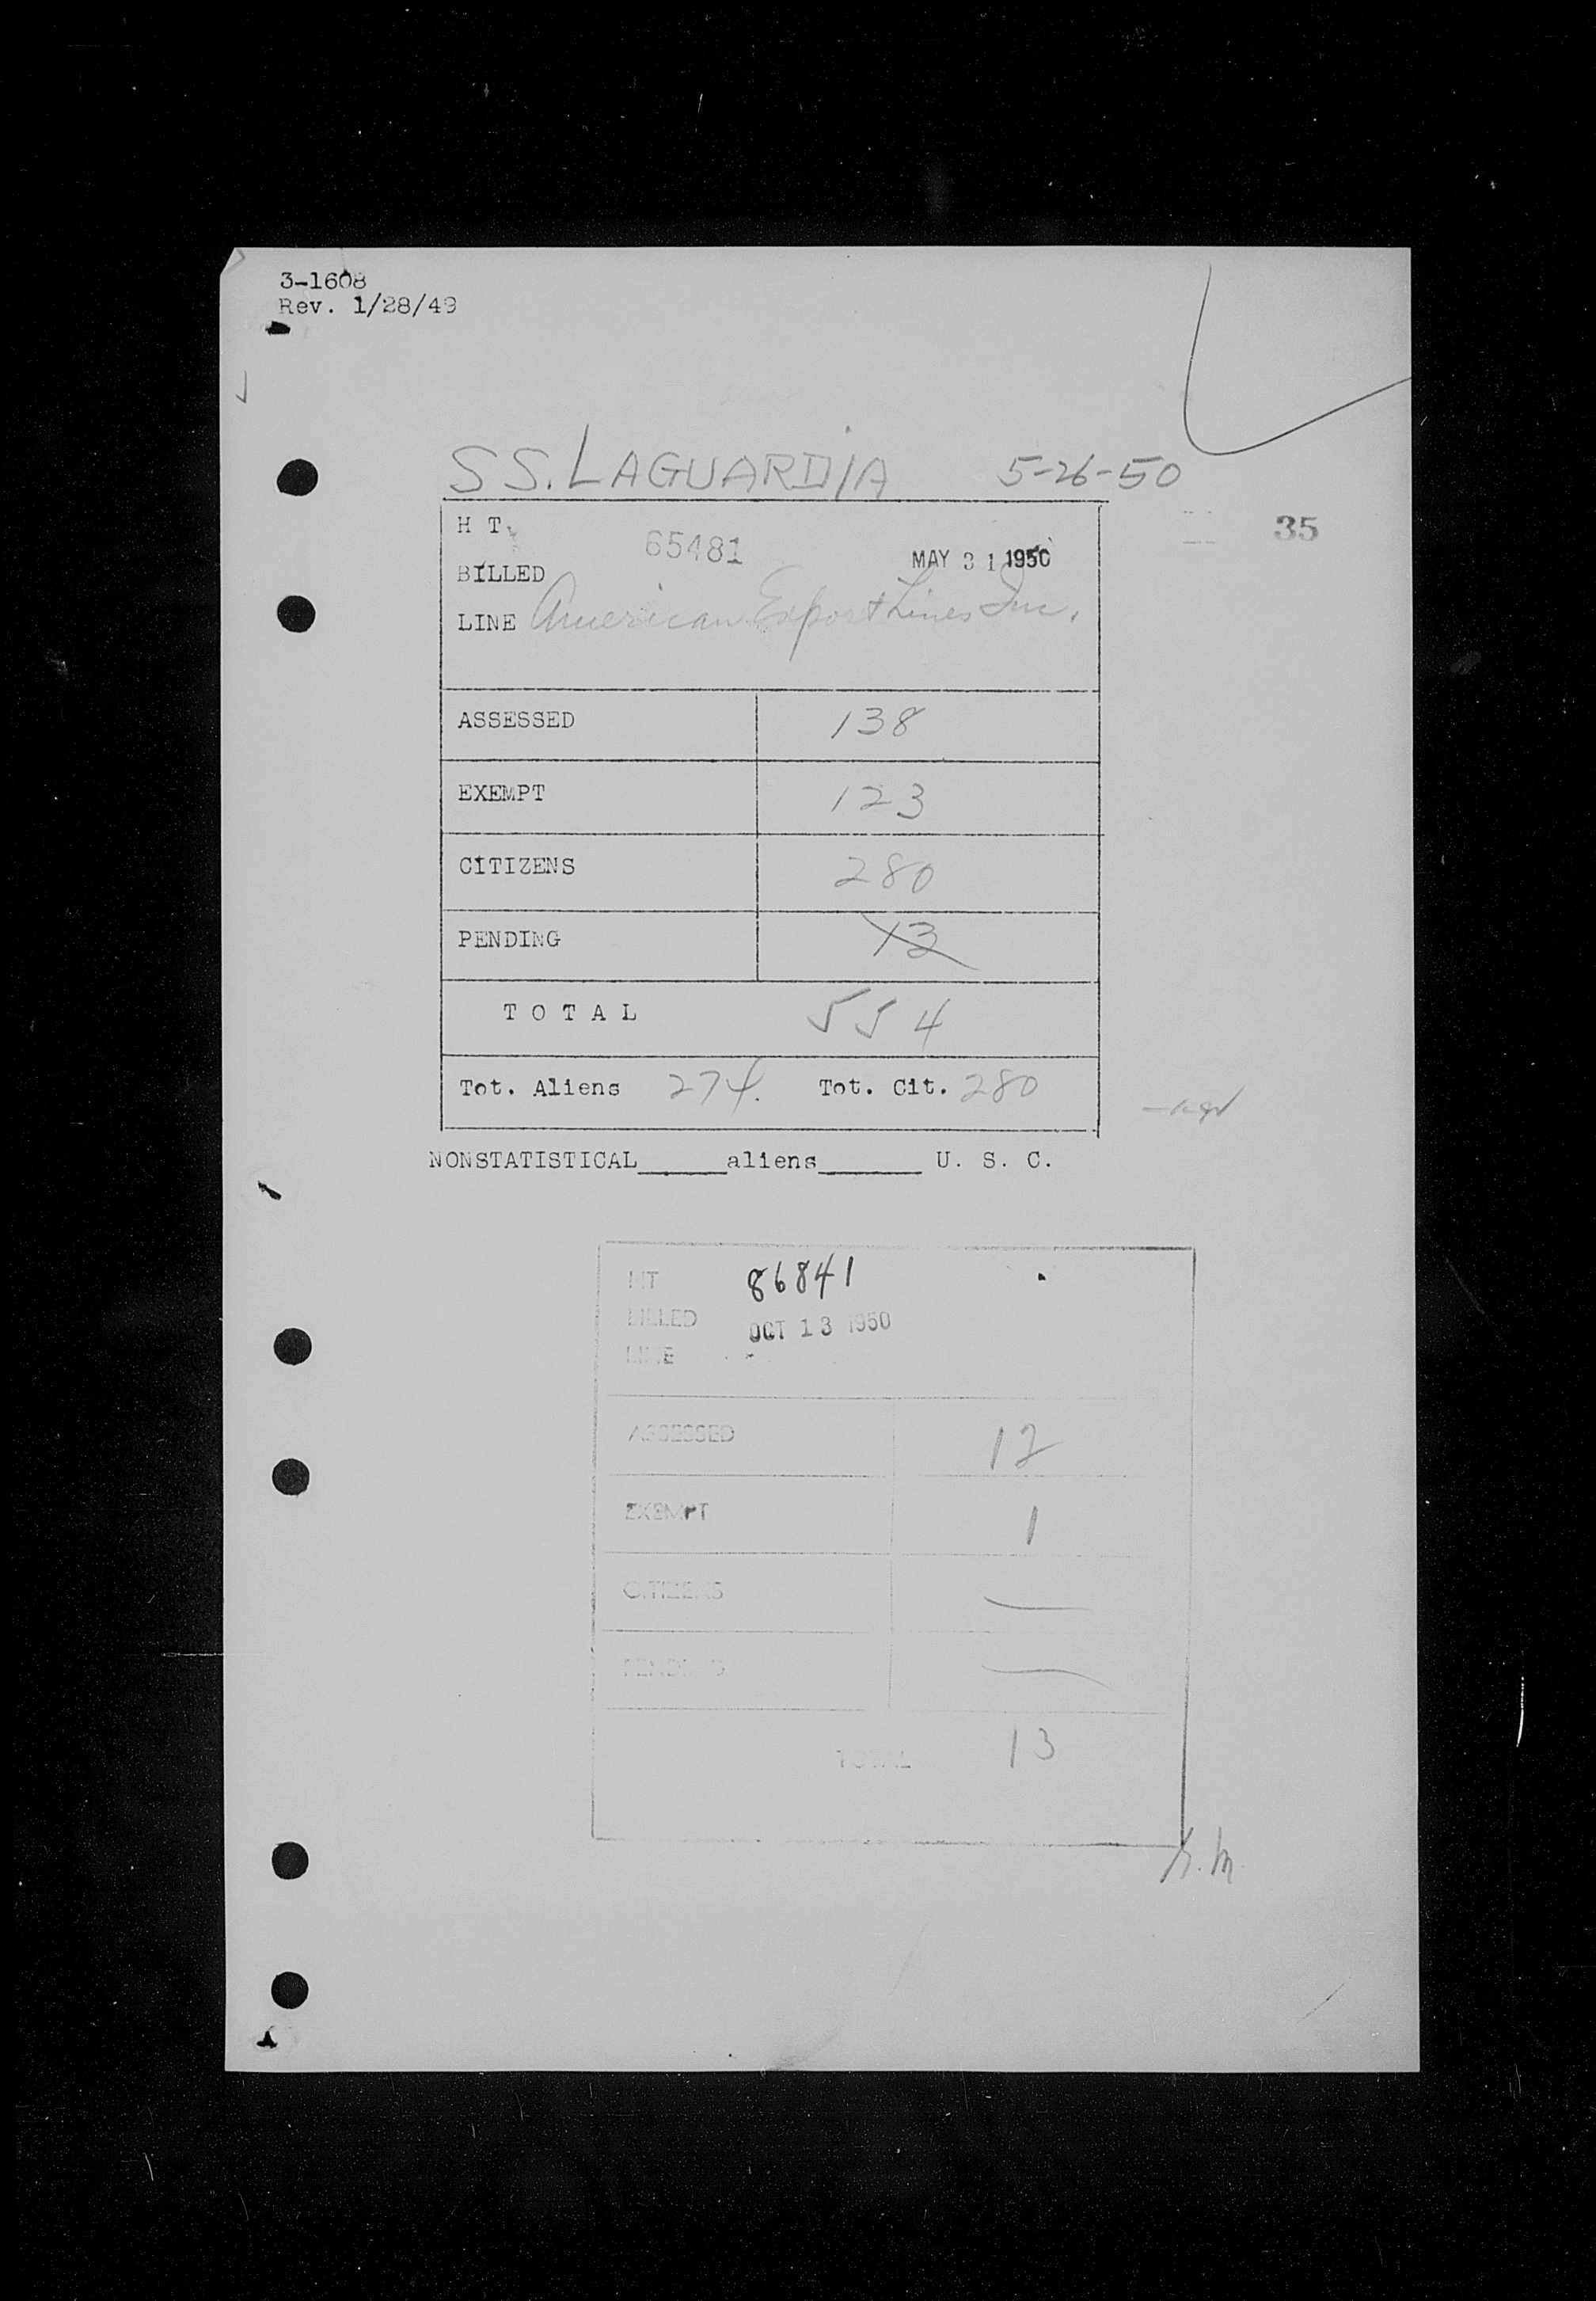 3-1608
Rev. 1/28/49
SS. LAGUARDIA 5-26-50
H T. 65481
35
BILLED MAY 31 1950
LINE American Export Lines Inc.
ASSESSED 138
EXEMPT 123
CITIZENS 280
PENDING 13
T O T A L 554
Tot. Aliens 274. Tot. Cit. 280
NONSTATISTICAL_____aliens______ U. S. C.
HT 86841
BILLED OCT 13 1950
LINE
ASSESSED 12
EXEMPT 1
CITIZENS —
PENDING —
TOTAL 13